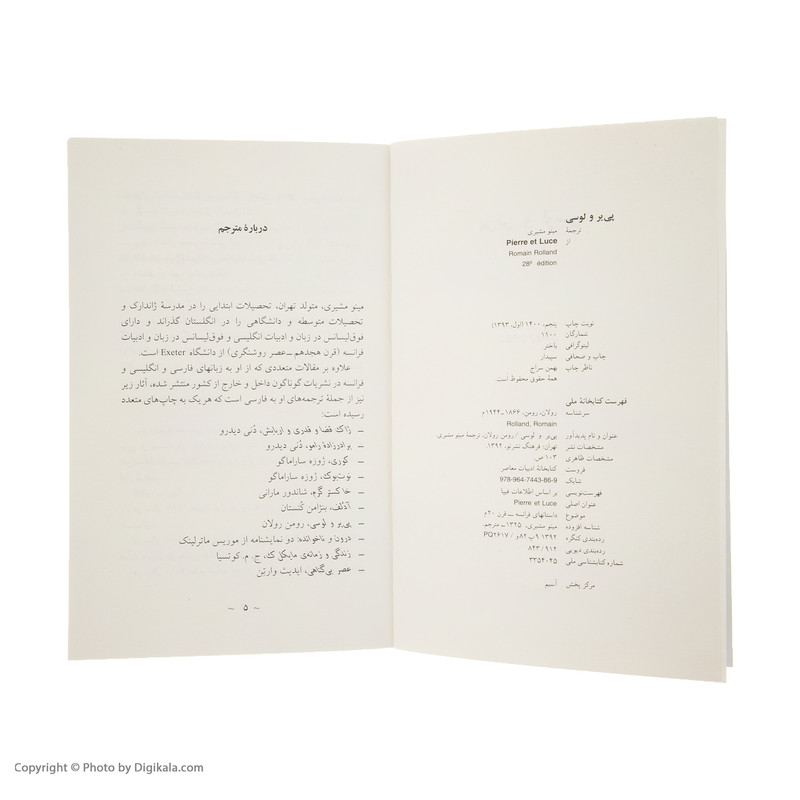 پی‌یر و لوسی
ترجمهٔ مینو مشیری
از Pierre et Luce
Romain Rolland
28ᵉ édition
نوبت چاپ پنجم، ۱۴۰۰ (اول، ۱۳۹۳)
شمارگان ۱۱۰۰
لیتوگرافی باختر
چاپ و صحافی سپیدار
ناظر چاپ بهمن سراج
همهٔ حقوق محفوظ است
فهرست کتابخانهٔ ملی
سرشناسه رولان، رومن، ۱۸۶۶-۱۹۴۴م
Rolland, Romain
عنوان و نام پدیدآور پی‌یر و لوسی / رومن رولان، ترجمهٔ مینو مشیری.
مشخصات نشر تهران: فرهنگ نشرنو، ۱۳۹۲.
مشخصات ظاهری ۱۰۳ ص.
فروست کتابخانهٔ ادبیات معاصر
شابک 978-964-7443-86-9
فهرست‌نویسی بر اساس اطلاعات فیپا
عنوان اصلی Pierre et Luce
موضوع داستانهای فرانسه — قرن ۲۰م
شناسه افزوده مینو مشیری، ۱۳۲۵- مترجم.
رده‌بندی کنگره ۱۳۹۲ ۹پ ۸۲و / PQ۲۶۱۷
رده‌بندی دیویی ۸۴۳/۹۱۲
شماره کتابشناسی ملی ۳۳۵۴۰۴۵
مرکز پخش آسیم
دربارهٔ مترجم
مینو مشیری، متولد تهران، تحصیلات ابتدایی را در مدرسهٔ ژاندارک و
تحصیلات متوسطه و دانشگاهی را در انگلستان گذراند و دارای
فوق‌لیسانس در زبان و ادبیات انگلیسی و فوق‌لیسانس در زبان و ادبیات
فرانسه (قرن هجدهم – عصر روشنگری) از دانشگاه Exeter است.
علاوه بر مقالات متعددی که از او به زبانهای فارسی و انگلیسی و
فرانسه در نشریات گوناگون داخل و خارج از کشور منتشر شده، آثار زیر
نیز از جملهٔ ترجمه‌های او به فارسی است که هر یک به چاپ‌های متعدد
رسیده است:
– ژاک قضا و قدری و اربابش، دُنی دیدرو
– برادرزادهٔ رامو، دُنی دیدرو
– کوری، ژوزه ساراماگو
– نوت‌بوک، ژوزه ساراماگو
– خاکستر گرم، شاندور مارائی
– آدُلف، بنژامن کُنستان
– پی‌یر و لوسی، رومن رولان
– درون و ناخوانده: دو نمایشنامه از موریس ماترلینک
– زندگی و زمانه‌ی مایکل ک، ج. م. کوتسیا
– عصر بی‌گناهی، ایدیت وارتن
~ ۵ ~
Copyright © Photo by Digikala.com